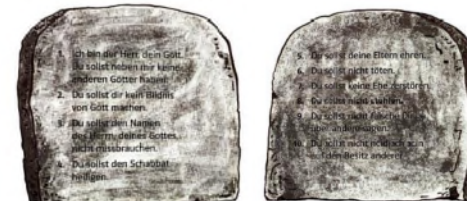 1. Ich bin der Herr, dein Gott.
Du sollst neben mir keine
anderen Götter haben.
2. Du sollst dir kein Bildnis
von Gott machen.
3. Du sollst den Namen
des Herrn, deines Gottes,
nicht missbrauchen.
4. Du sollst den Schabbat
heiligen.
5. Du sollst deine Eltern ehren.
6. Du sollst nicht töten.
7. Du sollst keine Ehe zerstören.
8. Du sollst nicht stehlen.
9. Du sollst nicht falsche Dinge
über andere sagen.
10. Du sollst nicht neidisch sein
auf den Besitz anderer.